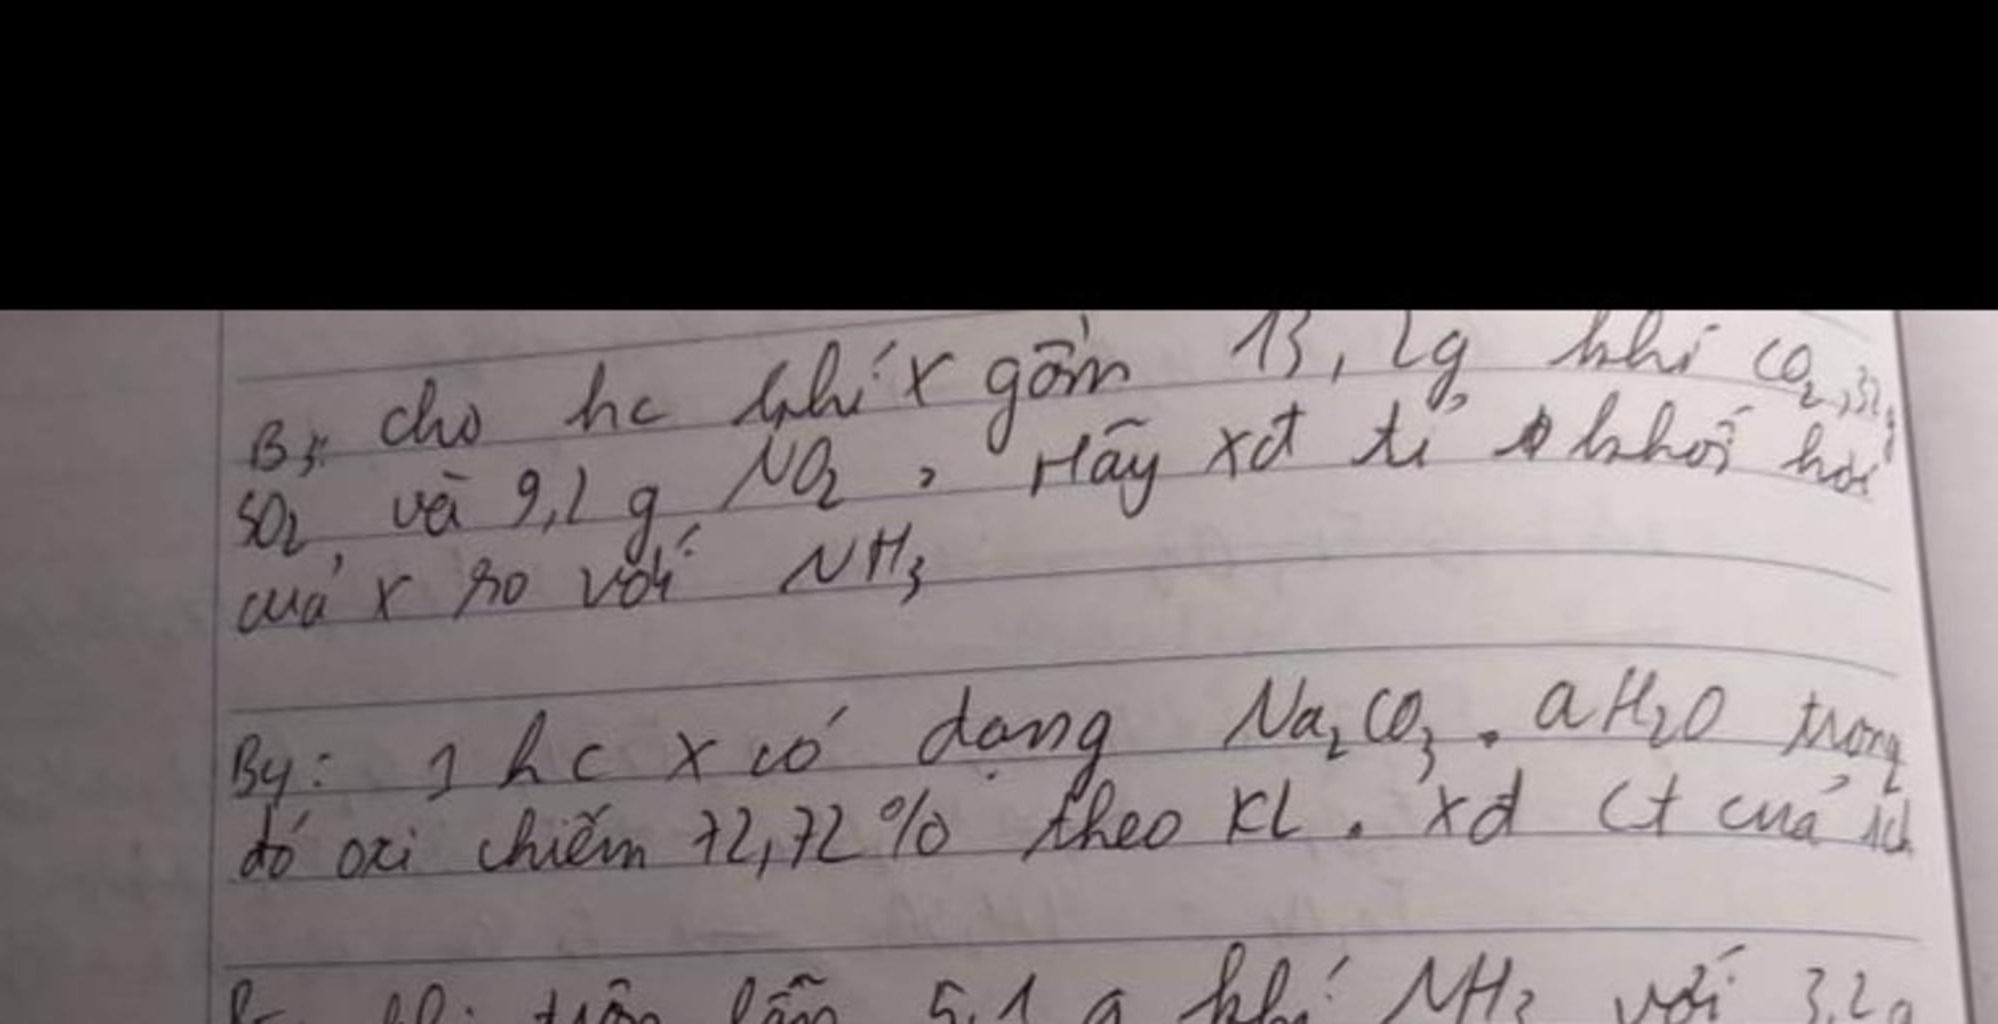 B3: cho hc khí X gồm 13,2g khí CO2, 32g
SO2, và 9,2g NO2, Hãy xđ tỉ khối hơi
của X so với NH3
B4: 1 hc X có dạng Na2CO3. aH2O trong
đó oxi chiếm 72,72% theo KL. xđ ct của
trộn lẫn 5,1 g khí NH3 với 3,2g